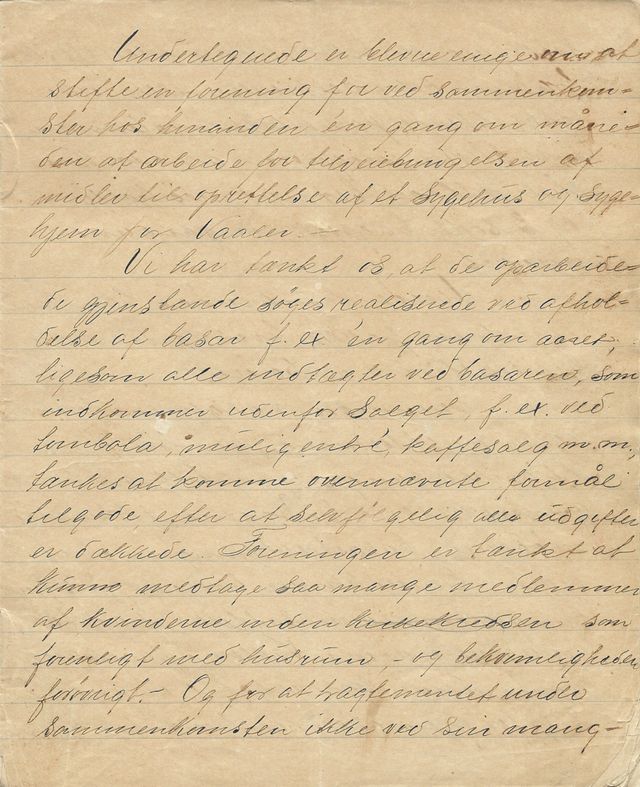 Undertegnede er blevne enige om at
stifte en forening for ved sammenkom-
ster hos hinanden én gang om måne-
den at arbeide for tilveiebringelsen af
midler til oprettelse af et Sygehus og Syge-
hjem for Vaaler. —
Vi har tænkt os at de oparbeide-
de gjenstande søges realiserede ved afhol-
delse af basar f. ex én gang om aaret,
ligesom alle indtægter ved basaren, som
indkommer udenfor salget, f. ex. ved
tombola, mulig entré, kaffesalg m.m.,
tænkes at komme ovennævnte formål
tilgode efter at selvfølgelig alle udgifter
er dækkede. Foreningen er tænkt at
kunne medtage saa mange medlemmer
af kvinderne inden kirkekredsen som
forenligt med husrum, – og bekvemligheden
forøvrigt. – Og for at tragtementet under
sammenkomsten ikke ved sin mang-